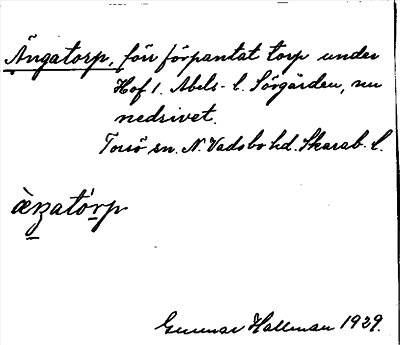 Ängatorp, förr förpantat torp under
Hof 1. Abels- l. Sörgården, nu
nedrivet.
Torsö sn. N. Vadsbo hd. Skarab. l.
Gunnar Hallman 1929.